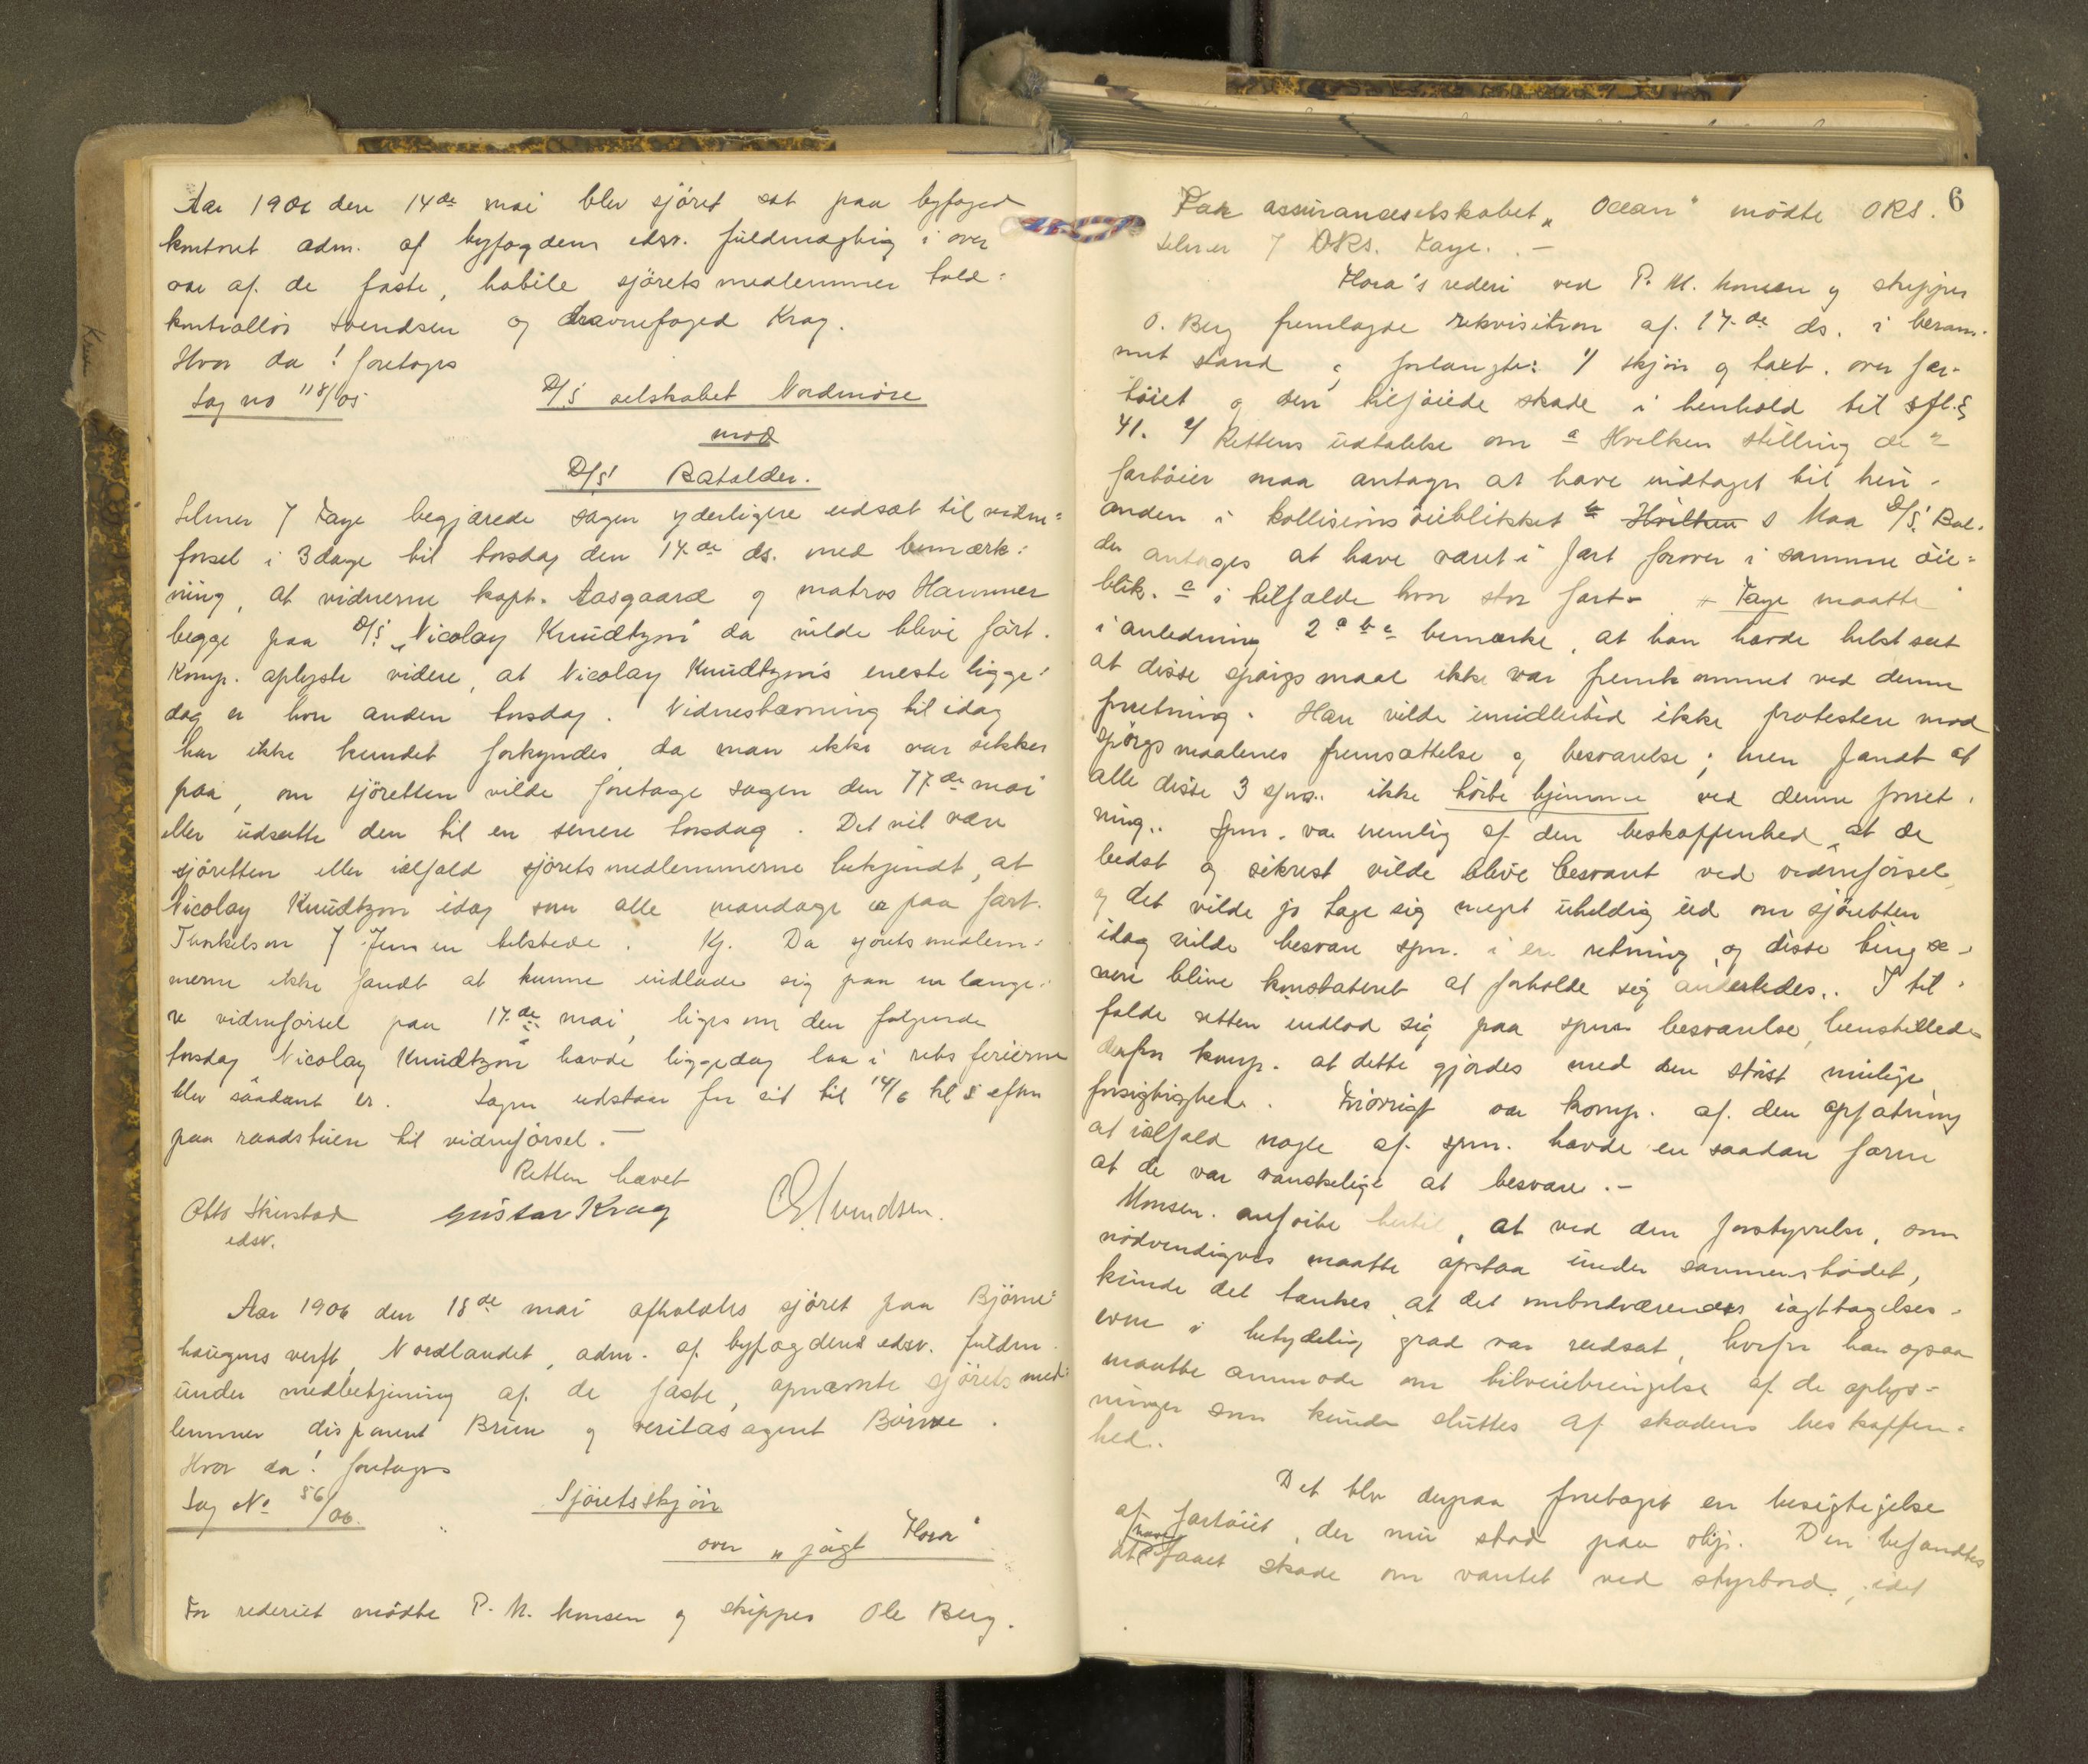 Aar 1906 den 14de mai blev sjöret sat paa byfoged
kontoret adm. af byfogdens edsv. fuldmægtig i over
vær af de faste, habile sjöretsmedlemmer told=
kontrollör Svendsen og havnefoged Krag.
Hvor da! foretoges
Sag no 118/05
D/S selskabet Nordmöre
mod
D/S Batalder.
Selmer f Faye begjærede sagen yderligere udsat til vidne=
försel i 3 dage til torsdag den 17de ds. med bemærk=
ning, at vidnerne kapt. Aasgaard og matros Hammer
begge paa D/S „Nicolay Knudtzon" da vilde blive fört.
Komp. oplyste videre, at Nicolay Knudtzon's eneste ligge=
dag er hver anden torsdag. Vidnestævning til idag
har ikke kundet forkyndes, da man ikke var sikker
paa, om sjöretten vilde foretage sagen den 17de mai
eller udsætte den til en senere torsdag. Det vil være
sjöretten eller ialfald sjöretsmedlemmerne bekjendt, at
Nicolay Knudtzon idag som alle mandage er paa fart.
Thorkelson f Jensen tilstede. Kj. Da sjöretsmedlem=
merne ikke fandt at kunne indlade sig paa en længe=
re vidneförsel paa 17de mai, ligesom den fölgende
torsdag Nicolay Knudtzon havde liggedag laa i retsferierne
blev saadant er. Sagen udstaar for sit til 14/6 kl 5 eftm
paa raadstuen til vidneförsel.—
Retten hævet
Otto Skirstad Gustav Krag CSvendsen.
edsv.
Aar 1906 den 18de mai afholdtes sjöret paa Björne=
haugens verft, Nordlandet, adm. af byfogdens edsv. fuldm.
under medbetjening af de faste, opnævnte sjörets med=
lemmer disponent Brun og veritasagent Börve.
Hvor da! foretoges
Sag No 56/06.
Sjöretsskjön
over „jagt Flora"
For rederiet mödte P. M. Monsen og skipper Ole Berg.
6
For assuranceselskabet „Ocean" mödte ORS.
Selmer f ORS. Faye.—
Flora's rederi ved P. M. Monsen og skipper
O. Berg fremlagde rekvisition af 17de ds. i beram-
met stand og forlangte: 1/ skjön og taxt. over far-
töiet og den tilföiede skade i henhold til sfl. §
41. 2/ Rettens udtalelse om a Hvilken stilling de 2
fartöier maa antages at have indtaget til hin-
anden i kollisionsöieblikket b Hvilken Maa D/S Bat.
der antages at have været i fart forover i samme öie=
blik. c i tilfælde hvor stor fart— Faye maatte
i anledning 2 a b c bemærke, at han havde helst seet
at disse spörgsmaal ikke var fremkommet ved denne
forretning. Han vilde imidlertid ikke protestere mod
spörgsmaalenes fremsættelse og besvarelse; men fandt at
alle disse 3 spm. ikke hörte hjemme ved denne forret.
ning. Spm. var nemlig af den beskaffenhed, at de
bedst og sikrest vilde blive besvaret ved vidneförsel,
og det vilde jo tage sig meget uheldig ud om sjöretten
idag vilde besvare spm. i en retning, og disse ting se-
nere blive konstateret at forholde sig anderledes. I til-
fælde retten indlod sig paa spms besvarelse, henstillede
derfor komp. at dette gjordes med den störst mulige
forsigtighed. Forövrigt var komp. af den opfatning
at ialfald nogle af spm. havde en saadan form
at de var vanskelige at besvare.—
Monsen anförte hertil, at ved den forstyrrelse, som
nödvendigvis maatte opstaa under sammenstödet,
kunde det tænkes, at det ombordværendes iagttagelses-
evne i betydelig grad var nedsat, hvorfor han ogsaa
maatte anmode om tilveiebringelse af de oplys-
ninger som kunde sluttes af skadens beskaffen=
hed.
Det blev derpaa foretaget en besigtigelse
af fartöiet, der nu stod paa slip. Den befandtes
at have faaet skade om vantet ved styrbord, idet